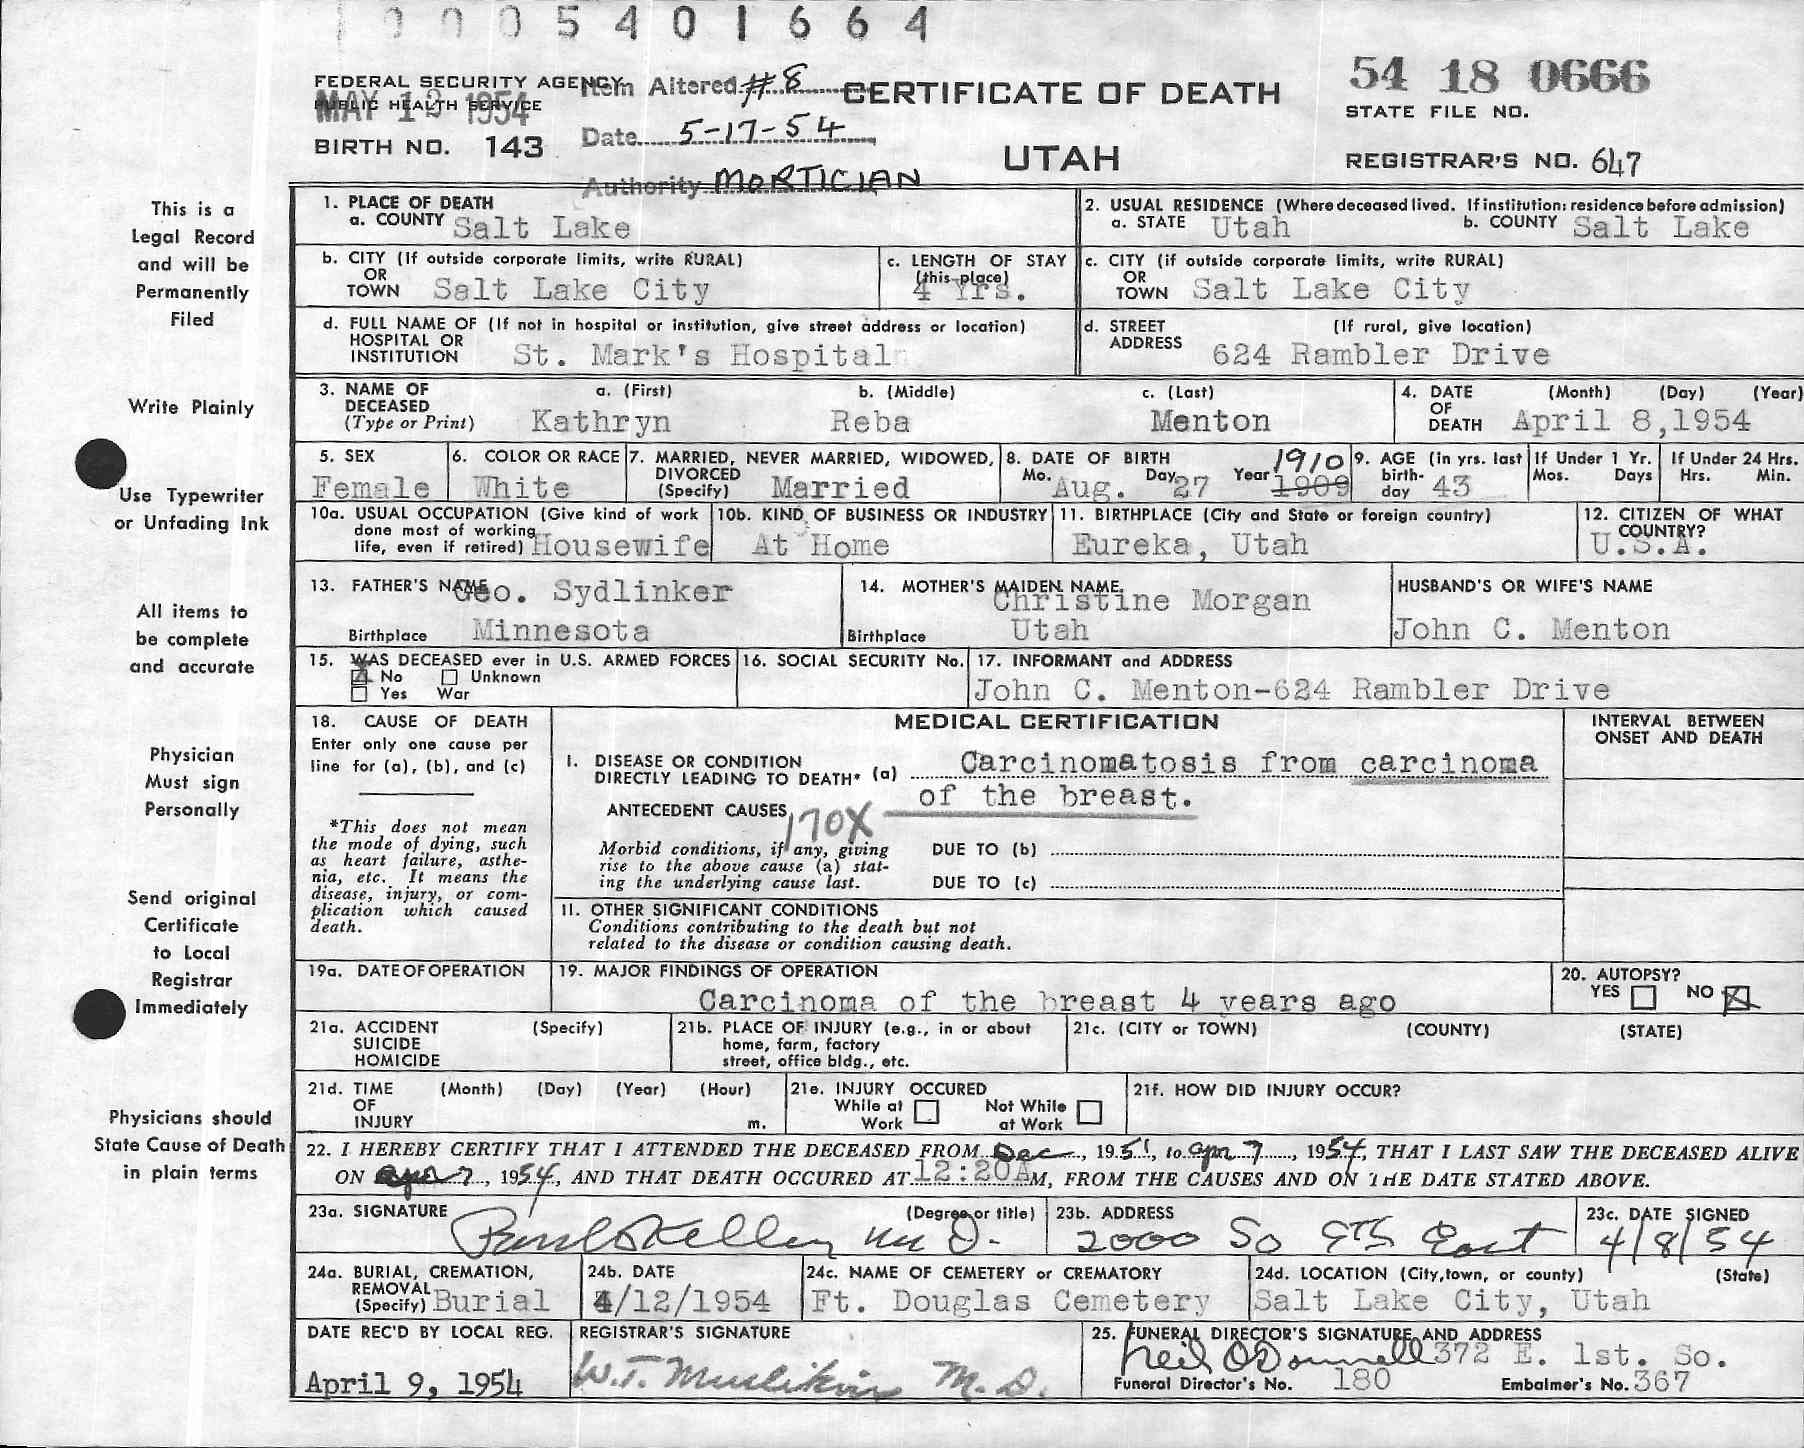 1 0 0 0 5 4 0 1 6 6 4
FEDERAL SECURITY AGENCY
PUBLIC HEALTH SERVICE
MAY 1954
BIRTH NO. 143
Item Altered #8
Date 5-17-54
Authority MORTICIAN
CERTIFICATE OF DEATH
UTAH
54 18 0666
STATE FILE NO.
REGISTRAR'S NO. 647
This is a
Legal Record
and will be
Permanently
Filed
Write Plainly
Use Typewriter
or Unfading Ink
All items to
be complete
and accurate
Physician
Must sign
Personally
Send original
Certificate
to Local
Registrar
Immediately
Physicians should
State Cause of Death
in plain terms
1. PLACE OF DEATH
a. COUNTY Salt Lake
2. USUAL RESIDENCE (Where deceased lived. If institution: residence before admission)
a. STATE Utah b. COUNTY Salt Lake
b. CITY (If outside corporate limits, write RURAL)
OR
TOWN Salt Lake City
c. LENGTH OF STAY
(this place)
4 Yrs.
c. CITY (if outside corporate limits, write RURAL)
OR
TOWN Salt Lake City
d. FULL NAME OF (If not in hospital or institution, give street address or location)
HOSPITAL OR
INSTITUTION St. Mark's Hospital
d. STREET (If rural, give location)
ADDRESS 624 Rambler Drive
3. NAME OF a. (First) b. (Middle) c. (Last)
DECEASED
(Type or Print) Kathryn Reba Menton
4. DATE (Month) (Day) (Year)
OF
DEATH April 8,1954
5. SEX
Female
6. COLOR OR RACE
White
7. MARRIED, NEVER MARRIED, WIDOWED,
DIVORCED
(Specify) Married
8. DATE OF BIRTH 1910
Mo. Aug. Day 27 Year 1909
9. AGE (in yrs. last
birth-
day 43
If Under 1 Yr.
Mos. Days
If Under 24 Hrs.
Hrs. Min.
10a. USUAL OCCUPATION (Give kind of work
done most of working
life, even if retired) Housewife
10b. KIND OF BUSINESS OR INDUSTRY
At Home
11. BIRTHPLACE (City and State or foreign country)
Eureka, Utah
12. CITIZEN OF WHAT
COUNTRY?
U.S.A.
13. FATHER'S NAME Geo. Sydlinker
Birthplace Minnesota
14. MOTHER'S MAIDEN NAME
Christine Morgan
Birthplace Utah
HUSBAND'S OR WIFE'S NAME
John C. Menton
15. WAS DECEASED ever in U.S. ARMED FORCES
No Unknown
Yes War
16. SOCIAL SECURITY No.
17. INFORMANT and ADDRESS
John C. Menton-624 Rambler Drive
18. CAUSE OF DEATH
Enter only one cause per
line for (a), (b), and (c)
*This does not mean
the mode of dying, such
as heart failure, asthe-
nia, etc. It means the
disease, injury, or com-
plication which caused
death.
MEDICAL CERTIFICATION
INTERVAL BETWEEN
ONSET AND DEATH
I. DISEASE OR CONDITION
DIRECTLY LEADING TO DEATH* (a) Carcinomatosis from carcinoma
of the breast.
ANTECEDENT CAUSES
170X
Morbid conditions, if any, giving
rise to the above cause (a) stat-
ing the underlying cause last.
DUE TO (b)
DUE TO (c)
11. OTHER SIGNIFICANT CONDITIONS
Conditions contributing to the death but not
related to the disease or condition causing death.
19a. DATE OF OPERATION
19. MAJOR FINDINGS OF OPERATION
Carcinoma of the breast 4 years ago
20. AUTOPSY?
YES NO
21a. ACCIDENT (Specify)
SUICIDE
HOMICIDE
21b. PLACE OF INJURY (e.g., in or about
home, farm, factory
street, office bldg., etc.
21c. (CITY or TOWN) (COUNTY) (STATE)
21d. TIME (Month) (Day) (Year) (Hour)
OF
INJURY m.
21e. INJURY OCCURED
While at Work Not While at Work
21f. HOW DID INJURY OCCUR?
22. I HEREBY CERTIFY THAT I ATTENDED THE DECEASED FROM Dec , 1951, to apr 7, 1954, THAT I LAST SAW THE DECEASED ALIVE
ON apr 7, 1954, AND THAT DEATH OCCURED AT 12:20A M, FROM THE CAUSES AND ON THE DATE STATED ABOVE.
23a. SIGNATURE (Degree or title)
Paul S Kelley M D.
23b. ADDRESS
2000 So 9th East
23c. DATE SIGNED
4/8/54
24a. BURIAL, CREMATION,
REMOVAL
(Specify) Burial
24b. DATE
4/12/1954
24c. NAME OF CEMETERY or CREMATORY
Ft. Douglas Cemetery
24d. LOCATION (City, town, or county) (State)
Salt Lake City, Utah
DATE REC'D BY LOCAL REG.
April 9, 1954
REGISTRAR'S SIGNATURE
W.T. M. D.
25. FUNERAL DIRECTOR'S SIGNATURE AND ADDRESS
Neil O'Donnell 372 E. 1st. So.
Funeral Director's No. 180 Embalmer's No. 367